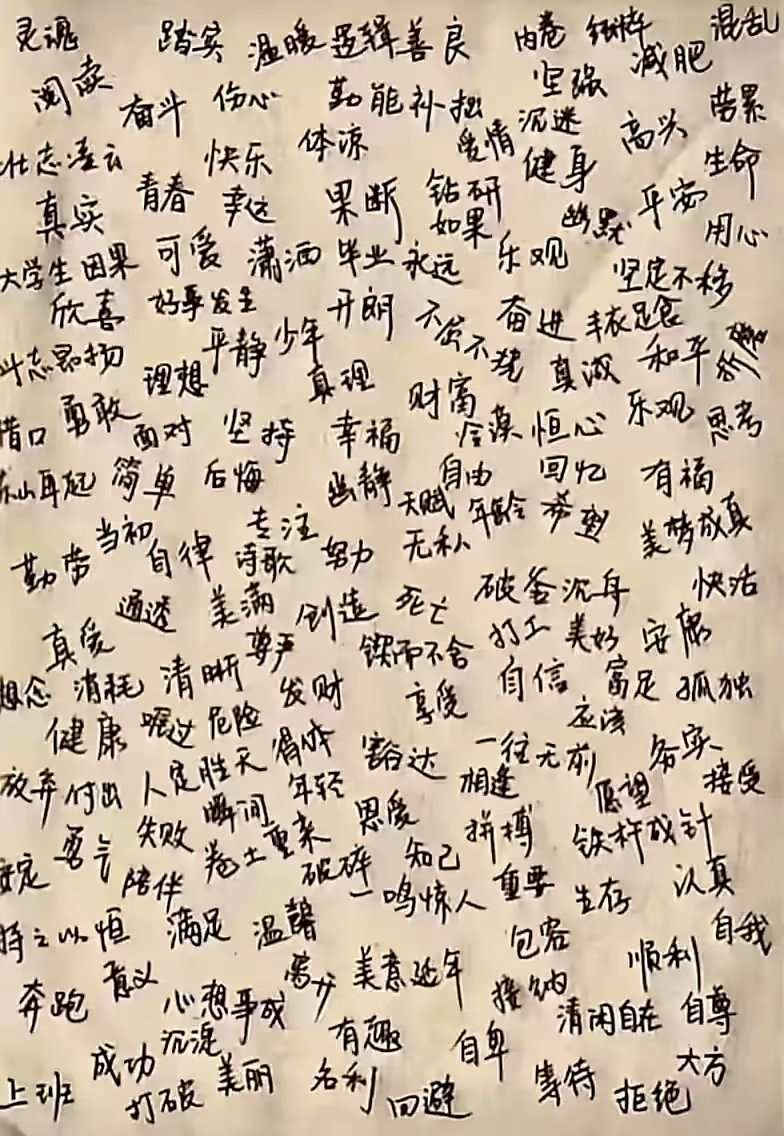 灵魂 踏实 温暖 逻辑 善良 内卷 纯粹 混乱
阅读 奋斗 伤心 勤能补拙 坚强 减肥 劳累
壮志凌云 快乐 体谅 爱情 沉迷 高兴
真实 青春 幸运 果断 钻研 健身 平安 生命
如果 幽默 用心
大学生 因果 可爱 潇洒 毕业 永远 乐观 坚定不移
欣喜 好事发生 开朗 不屈不挠 奋进 丰衣足食
斗志昂扬 平静 少年 真诚 和平
理想 真理 财富
借口 勇敢 面对 坚持 幸福 冷漠 恒心 乐观 思考
东山再起 简单 后悔 幽静 自由 回忆 有福
当初 专注 天赋 年龄 美梦成真
勤劳 自律 诗歌 努力 无私
通透 美满 创造 死亡 破釜沉舟 快活
真爱 尊严 锲而不舍 打工 美好 安康
想念 消耗 清晰 发财 享受 自信 富足 孤独
健康 危险 得体 豁达 一往无前 应该 务实
放弃 付出 人定胜天 年轻 相逢 愿望 接受
勇气 失败 瞬间 卷土重来 恩爱 拼搏 铁杵成针
安定 陪伴 破碎 知己 一鸣惊人 重要 生存 认真
持之以恒 满足 温馨 包容 自我
奔跑 意义 心想事成 离分 美意延年 接纳 顺利
沉淀 有趣 清闲自在 自尊
上班 成功 打破 美丽 名利 回避 自卑 等待 拒绝 大方